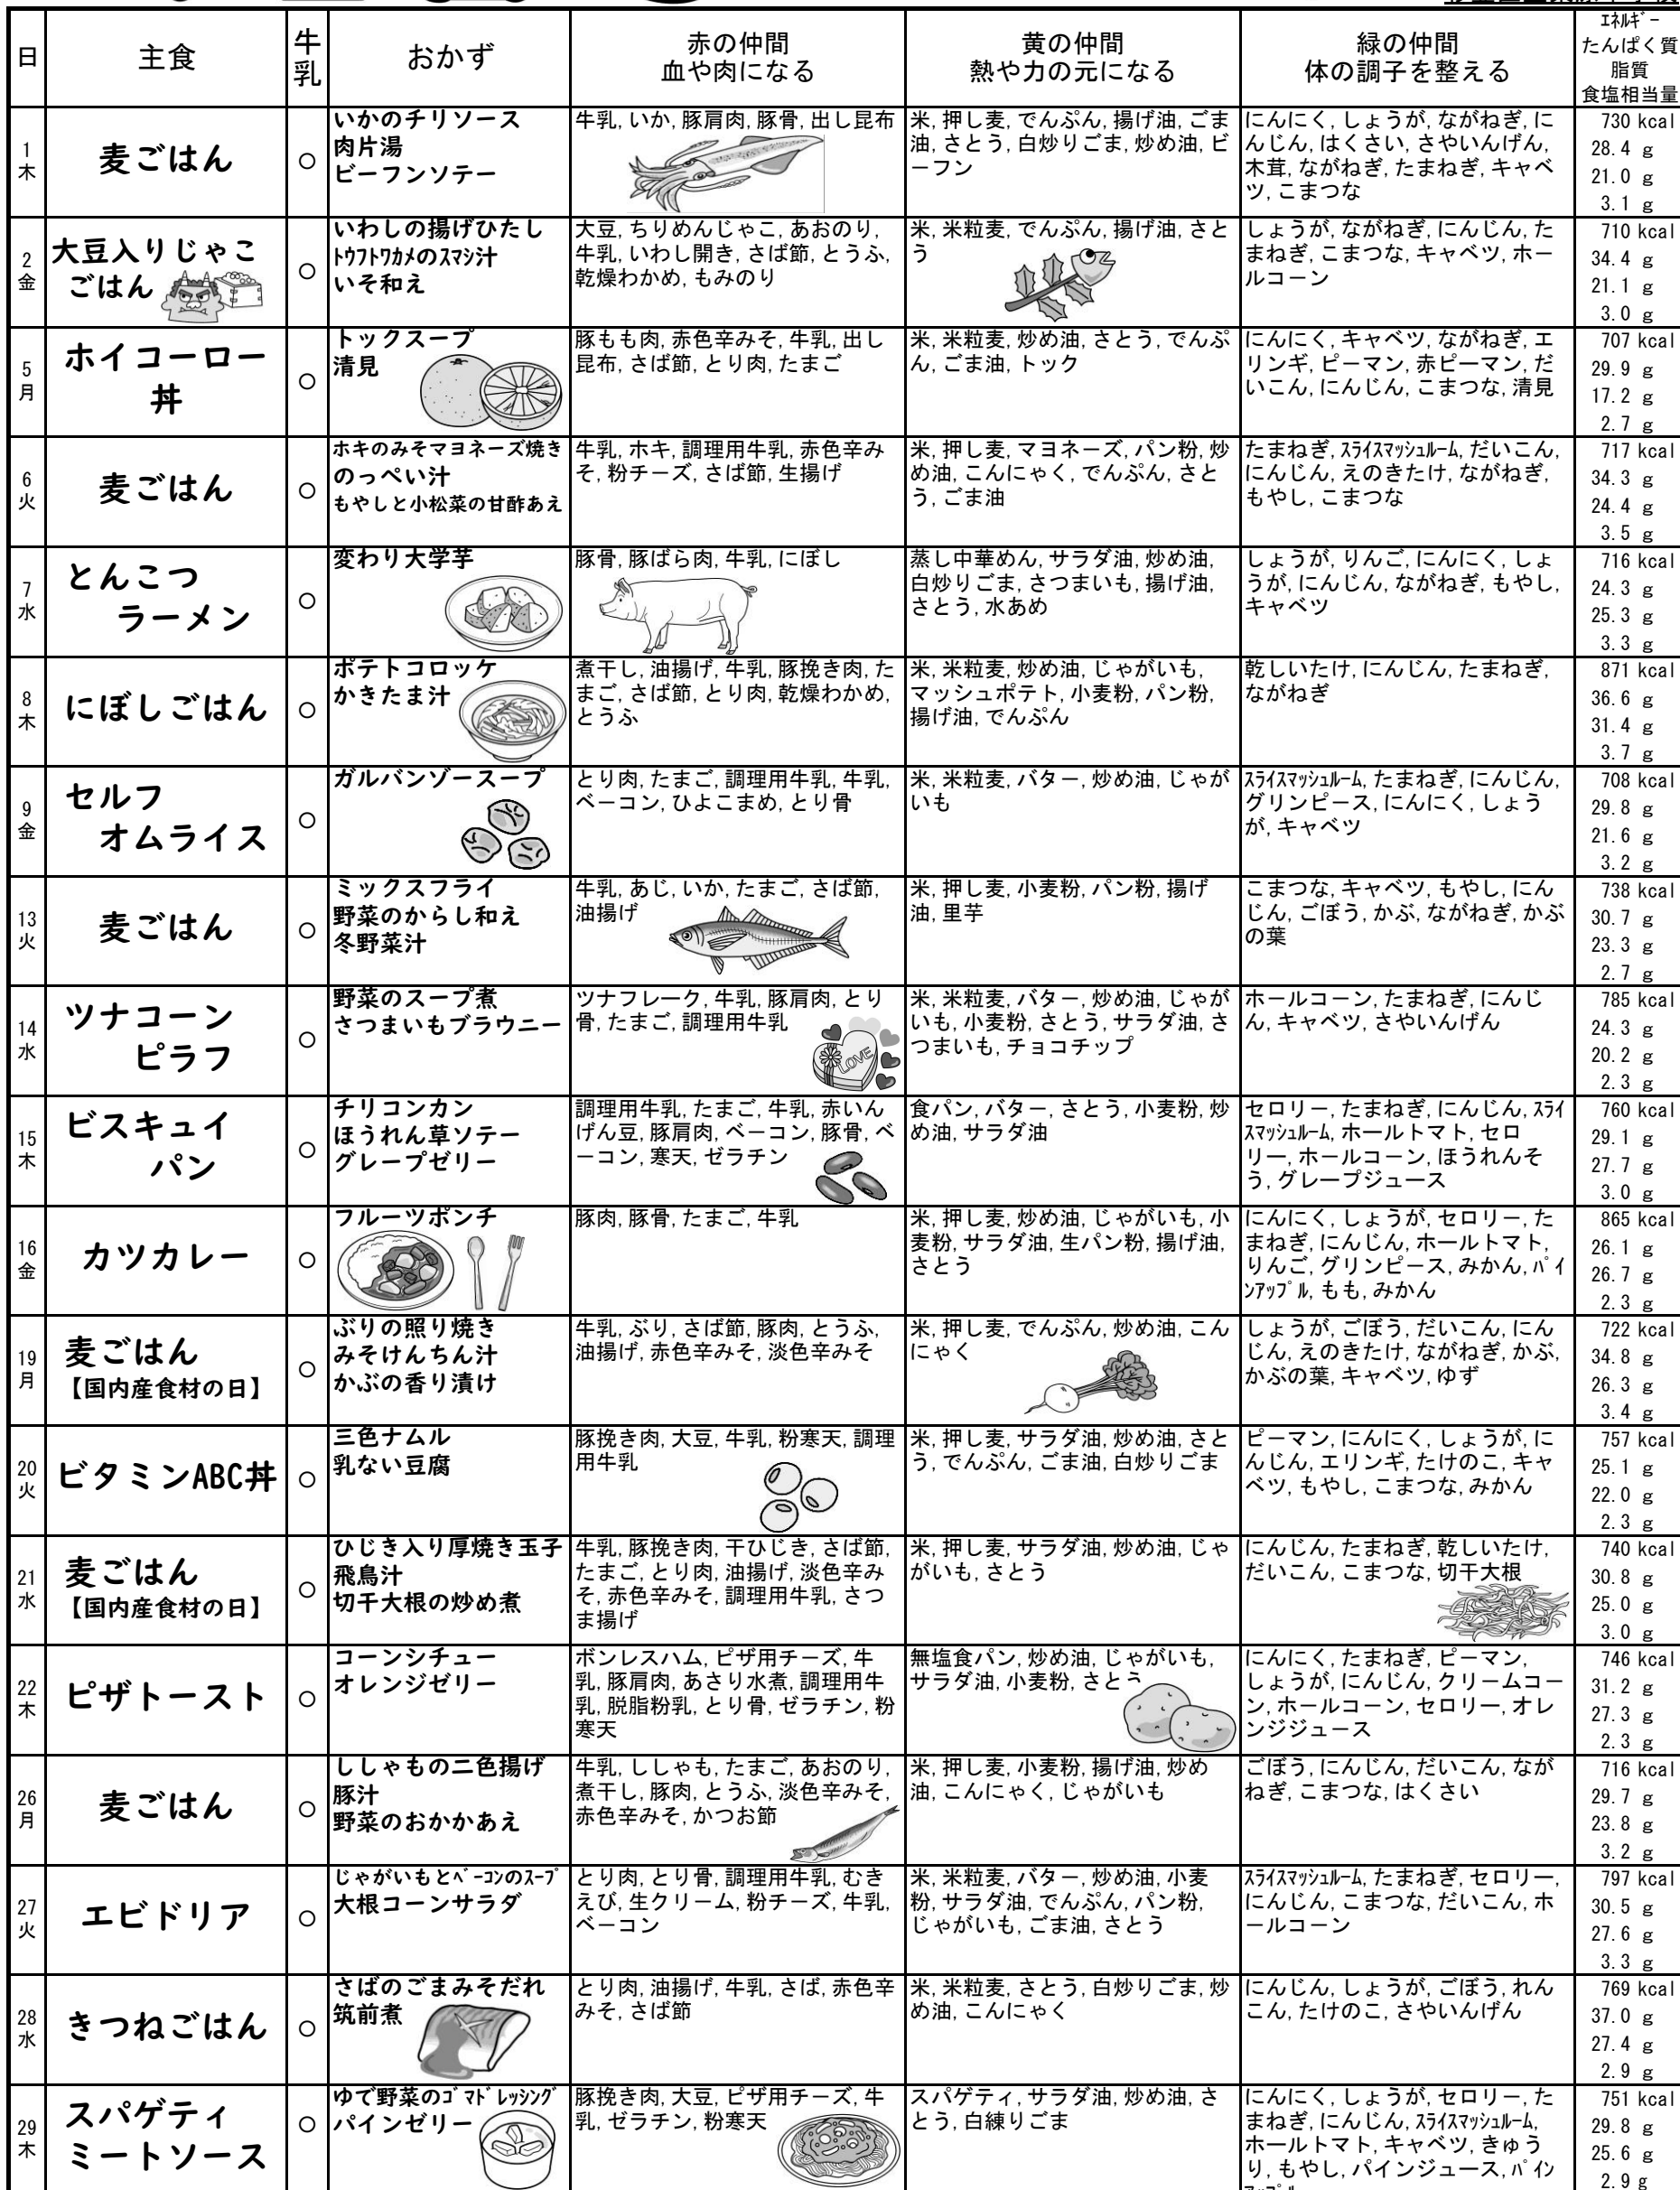 日
主食
牛乳
おかず
赤の仲間
血や肉になる
黄の仲間
熱や力の元になる
緑の仲間
体の調子を整える
ｴﾈﾙｷﾞｰ
たんぱく質
脂質
食塩相当量
1
木
麦ごはん
○
いかのチリソース
肉片湯
ビーフンソテー
牛乳,いか,豚肩肉,豚骨,出し昆布
米,押し麦,でんぷん,揚げ油,ごま
油,さとう,白炒りごま,炒め油,ビ
ーフン
にんにく,しょうが,ながねぎ,に
んじん,はくさい,さやいんげん,
木茸,ながねぎ,たまねぎ,キャベ
ツ,こまつな
730 kcal
28.4 g
21.0 g
3.1 g
2
金
大豆入りじゃこ
ごはん
○
いわしの揚げひたし
ﾄｳﾌﾄﾜｶﾒのｽﾏｼ汁
いそ和え
大豆,ちりめんじゃこ,あおのり,
牛乳,いわし開き,さば節,とうふ,
乾燥わかめ,もみのり
米,米粒麦,でんぷん,揚げ油,さと
う
しょうが,ながねぎ,にんじん,た
まねぎ,こまつな,キャベツ,ホー
ルコーン
710 kcal
34.4 g
21.1 g
3.0 g
5
月
ホイコーロー
丼
○
トックスープ
清見
豚もも肉,赤色辛みそ,牛乳,出し
昆布,さば節,とり肉,たまご
米,米粒麦,炒め油,さとう,でんぷ
ん,ごま油,トック
にんにく,キャベツ,ながねぎ,エ
リンギ,ピーマン,赤ピーマン,だ
いこん,にんじん,こまつな,清見
707 kcal
29.9 g
17.2 g
2.7 g
6
火
麦ごはん
○
ホキのみそマヨネーズ焼き
のっぺい汁
もやしと小松菜の甘酢あえ
牛乳,ホキ,調理用牛乳,赤色辛み
そ,粉チーズ,さば節,生揚げ
米,押し麦,マヨネーズ,パン粉,炒
め油,こんにゃく,でんぷん,さと
う,ごま油
たまねぎ,ｽﾗｲｽﾏｯｼｭﾙｰﾑ,だいこん,
にんじん,えのきたけ,ながねぎ,
もやし,こまつな
717 kcal
34.3 g
24.4 g
3.5 g
7
水
とんこつ
ラーメン
○
変わり大学芋
豚骨,豚ばら肉,牛乳,にぼし
蒸し中華めん,サラダ油,炒め油,
白炒りごま,さつまいも,揚げ油,
さとう,水あめ
しょうが,りんご,にんにく,しょ
うが,にんじん,ながねぎ,もやし,
キャベツ
716 kcal
24.3 g
25.3 g
3.3 g
8
木
にぼしごはん
○
ポテトコロッケ
かきたま汁
煮干し,油揚げ,牛乳,豚挽き肉,た
まご,さば節,とり肉,乾燥わかめ,
とうふ
米,米粒麦,炒め油,じゃがいも,
マッシュポテト,小麦粉,パン粉,
揚げ油,でんぷん
乾しいたけ,にんじん,たまねぎ,
ながねぎ
871 kcal
36.6 g
31.4 g
3.7 g
9
金
セルフ
オムライス
○
ガルバンゾースープ
とり肉,たまご,調理用牛乳,牛乳,
ベーコン,ひよこまめ,とり骨
米,米粒麦,バター,炒め油,じゃが
いも
ｽﾗｲｽﾏｯｼｭﾙｰﾑ,たまねぎ,にんじん,
グリンピース,にんにく,しょう
が,キャベツ
708 kcal
29.8 g
21.6 g
3.2 g
13
火
麦ごはん
○
ミックスフライ
野菜のからし和え
冬野菜汁
牛乳,あじ,いか,たまご,さば節,
油揚げ
米,押し麦,小麦粉,パン粉,揚げ
油,里芋
こまつな,キャベツ,もやし,にん
じん,ごぼう,かぶ,ながねぎ,かぶ
の葉
738 kcal
30.7 g
23.3 g
2.7 g
14
水
ツナコーン
ピラフ
○
野菜のスープ煮
さつまいもブラウニー
ツナフレーク,牛乳,豚肩肉,とり
骨,たまご,調理用牛乳
LOVE
米,米粒麦,バター,炒め油,じゃが
いも,小麦粉,さとう,サラダ油,さ
つまいも,チョコチップ
ホールコーン,たまねぎ,にんじ
ん,キャベツ,さやいんげん
785 kcal
24.3 g
20.2 g
2.3 g
15
木
ビスキュイ
パン
○
チリコンカン
ほうれん草ソテー
グレープゼリー
調理用牛乳,たまご,牛乳,赤いん
げん豆,豚肩肉,ベーコン,豚骨,ベ
ーコン,寒天,ゼラチン
食パン,バター,さとう,小麦粉,炒
め油,サラダ油
セロリー,たまねぎ,にんじん,ｽﾗｲ
ｽﾏｯｼｭﾙｰﾑ,ホールトマト,セロ
リー,ホールコーン,ほうれんそ
う,グレープジュース
760 kcal
29.1 g
27.7 g
3.0 g
16
金
カツカレー
○
フルーツポンチ
豚肉,豚骨,たまご,牛乳
米,押し麦,炒め油,じゃがいも,小
麦粉,サラダ油,生パン粉,揚げ油,
さとう
にんにく,しょうが,セロリー,た
まねぎ,にんじん,ホールトマト,
りんご,グリンピース,みかん,ﾊﾟｲ
ﾝｱｯﾌﾟﾙ,もも,みかん
865 kcal
26.1 g
26.7 g
2.3 g
19
月
麦ごはん
【国内産食材の日】
○
ぶりの照り焼き
みそけんちん汁
かぶの香り漬け
牛乳,ぶり,さば節,豚肉,とうふ,
油揚げ,赤色辛みそ,淡色辛みそ
米,押し麦,でんぷん,炒め油,こん
にゃく
しょうが,ごぼう,だいこん,にん
じん,えのきたけ,ながねぎ,かぶ,
かぶの葉,キャベツ,ゆず
722 kcal
34.8 g
26.3 g
3.4 g
20
火
ビタミンABC丼
○
三色ナムル
乳ない豆腐
豚挽き肉,大豆,牛乳,粉寒天,調理
用牛乳
米,押し麦,サラダ油,炒め油,さと
う,でんぷん,ごま油,白炒りごま
ピーマン,にんにく,しょうが,に
んじん,エリンギ,たけのこ,キャ
ベツ,もやし,こまつな,みかん
757 kcal
25.1 g
22.0 g
2.3 g
21
水
麦ごはん
【国内産食材の日】
○
ひじき入り厚焼き玉子
飛鳥汁
切干大根の炒め煮
牛乳,豚挽き肉,干ひじき,さば節,
たまご,とり肉,油揚げ,淡色辛み
そ,赤色辛みそ,調理用牛乳,さつ
ま揚げ
米,押し麦,サラダ油,炒め油,じゃ
がいも,さとう
にんじん,たまねぎ,乾しいたけ,
だいこん,こまつな,切干大根
740 kcal
30.8 g
25.0 g
3.0 g
22
木
ピザトースト
○
コーンシチュー
オレンジゼリー
ボンレスハム,ピザ用チーズ,牛
乳,豚肩肉,あさり水煮,調理用牛
乳,脱脂粉乳,とり骨,ゼラチン,粉
寒天
無塩食パン,炒め油,じゃがいも,
サラダ油,小麦粉,さとう
にんにく,たまねぎ,ピーマン,
しょうが,にんじん,クリームコー
ン,ホールコーン,セロリー,オレ
ンジジュース
746 kcal
31.2 g
27.3 g
2.3 g
26
月
麦ごはん
○
ししゃもの二色揚げ
豚汁
野菜のおかかあえ
牛乳,ししゃも,たまご,あおのり,
煮干し,豚肉,とうふ,淡色辛みそ,
赤色辛みそ,かつお節
米,押し麦,小麦粉,揚げ油,炒め
油,こんにゃく,じゃがいも
ごぼう,にんじん,だいこん,なが
ねぎ,こまつな,はくさい
716 kcal
29.7 g
23.8 g
3.2 g
27
火
エビドリア
○
じゃがいもとﾍﾞｰｺﾝのｽｰﾌﾟ
大根コーンサラダ
とり肉,とり骨,調理用牛乳,むき
えび,生クリーム,粉チーズ,牛乳,
ベーコン
米,米粒麦,バター,炒め油,小麦
粉,サラダ油,でんぷん,パン粉,
じゃがいも,ごま油,さとう
ｽﾗｲｽﾏｯｼｭﾙｰﾑ,たまねぎ,セロリー,
にんじん,こまつな,だいこん,ホ
ールコーン
797 kcal
30.5 g
27.6 g
3.3 g
28
水
きつねごはん
○
さばのごまみそだれ
筑前煮
とり肉,油揚げ,牛乳,さば,赤色辛
みそ,さば節
米,米粒麦,さとう,白炒りごま,炒
め油,こんにゃく
にんじん,しょうが,ごぼう,れん
こん,たけのこ,さやいんげん
769 kcal
37.0 g
27.4 g
2.9 g
29
木
スパゲティ
ミートソース
○
ゆで野菜のｺﾞﾏﾄﾞﾚｯｼﾝｸﾞ
パインゼリー
豚挽き肉,大豆,ピザ用チーズ,牛
乳,ゼラチン,粉寒天
スパゲティ,サラダ油,炒め油,さ
とう,白練りごま
にんにく,しょうが,セロリー,た
まねぎ,にんじん,ｽﾗｲｽﾏｯｼｭﾙｰﾑ,
ホールトマト,キャベツ,きゅう
り,もやし,パインジュース,ﾊﾟｲﾝ
751 kcal
29.8 g
25.6 g
2.9 g